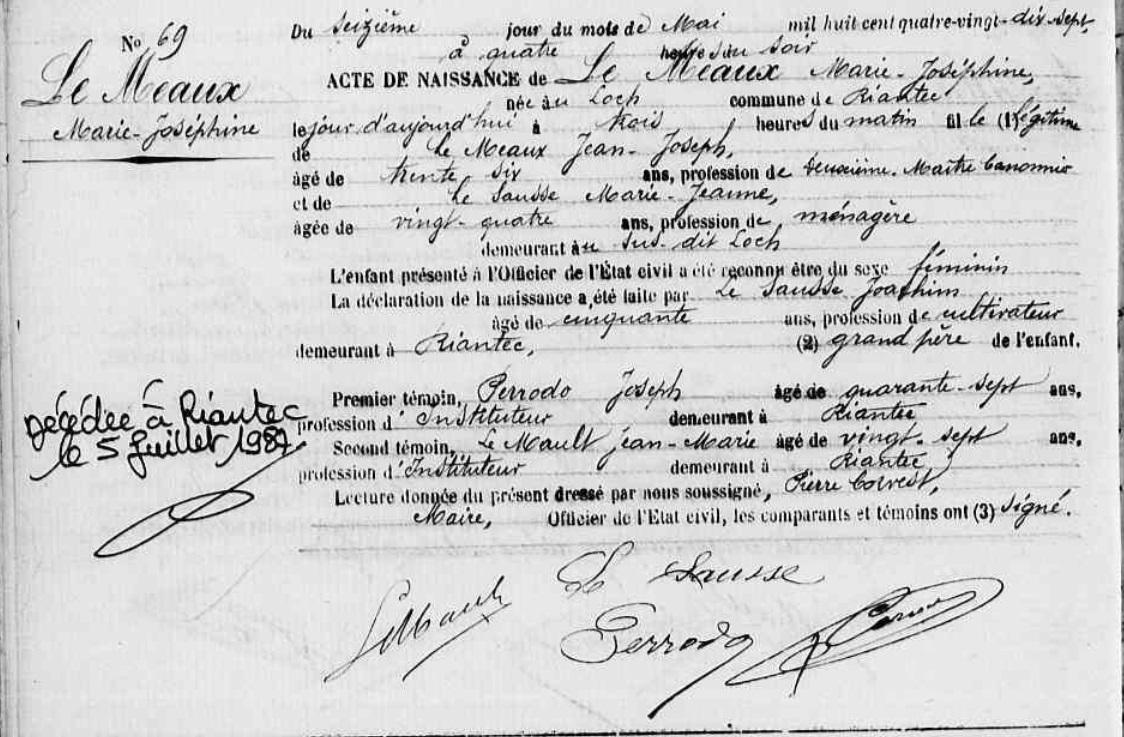 No 69
Le Meaux
Marie-Joséphine
Du seizième jour du mois de Mai mil huit cent quatre-vingt-dix-sept
à quatre heures du soir
ACTE DE NAISSANCE de Le Meaux Marie-Joséphine,
née au Loch commune de Riantec
le jour d'aujourd'hui à trois heures du matin fille (1) légitime
de Le Meaux Jean-Joseph,
âgé de trente six ans, profession de deuxième Maître Canonnier
et de Le Sausse Marie-Jeanne,
âgée de vingt-quatre ans, profession de ménagère
demeurant au sus-dit Loch
L'enfant présenté à l'Officier de l'État civil a été reconnu être du sexe féminin
La déclaration de la naissance a été faite par Le Sausse Joachim
âgé de cinquante ans, profession de cultivateur
demeurant à Riantec, (2) grand père de l'enfant.
Premier témoin, Perrodo Joseph âgé de quarante-sept ans,
profession d'Instituteur demeurant à Riantec
Second témoin, Le Mault Jean-Marie âgé de vingt-sept ans,
profession d'Instituteur demeurant à Riantec
Lecture donnée du présent dressé par nous soussigné, Pierre Corvest,
Maire, Officier de l'Etat civil, les comparants et témoins ont (3) signé.
Décédée à Riantec
le 5 Juillet 1987
Le Sausse
LeMault
Perrodo